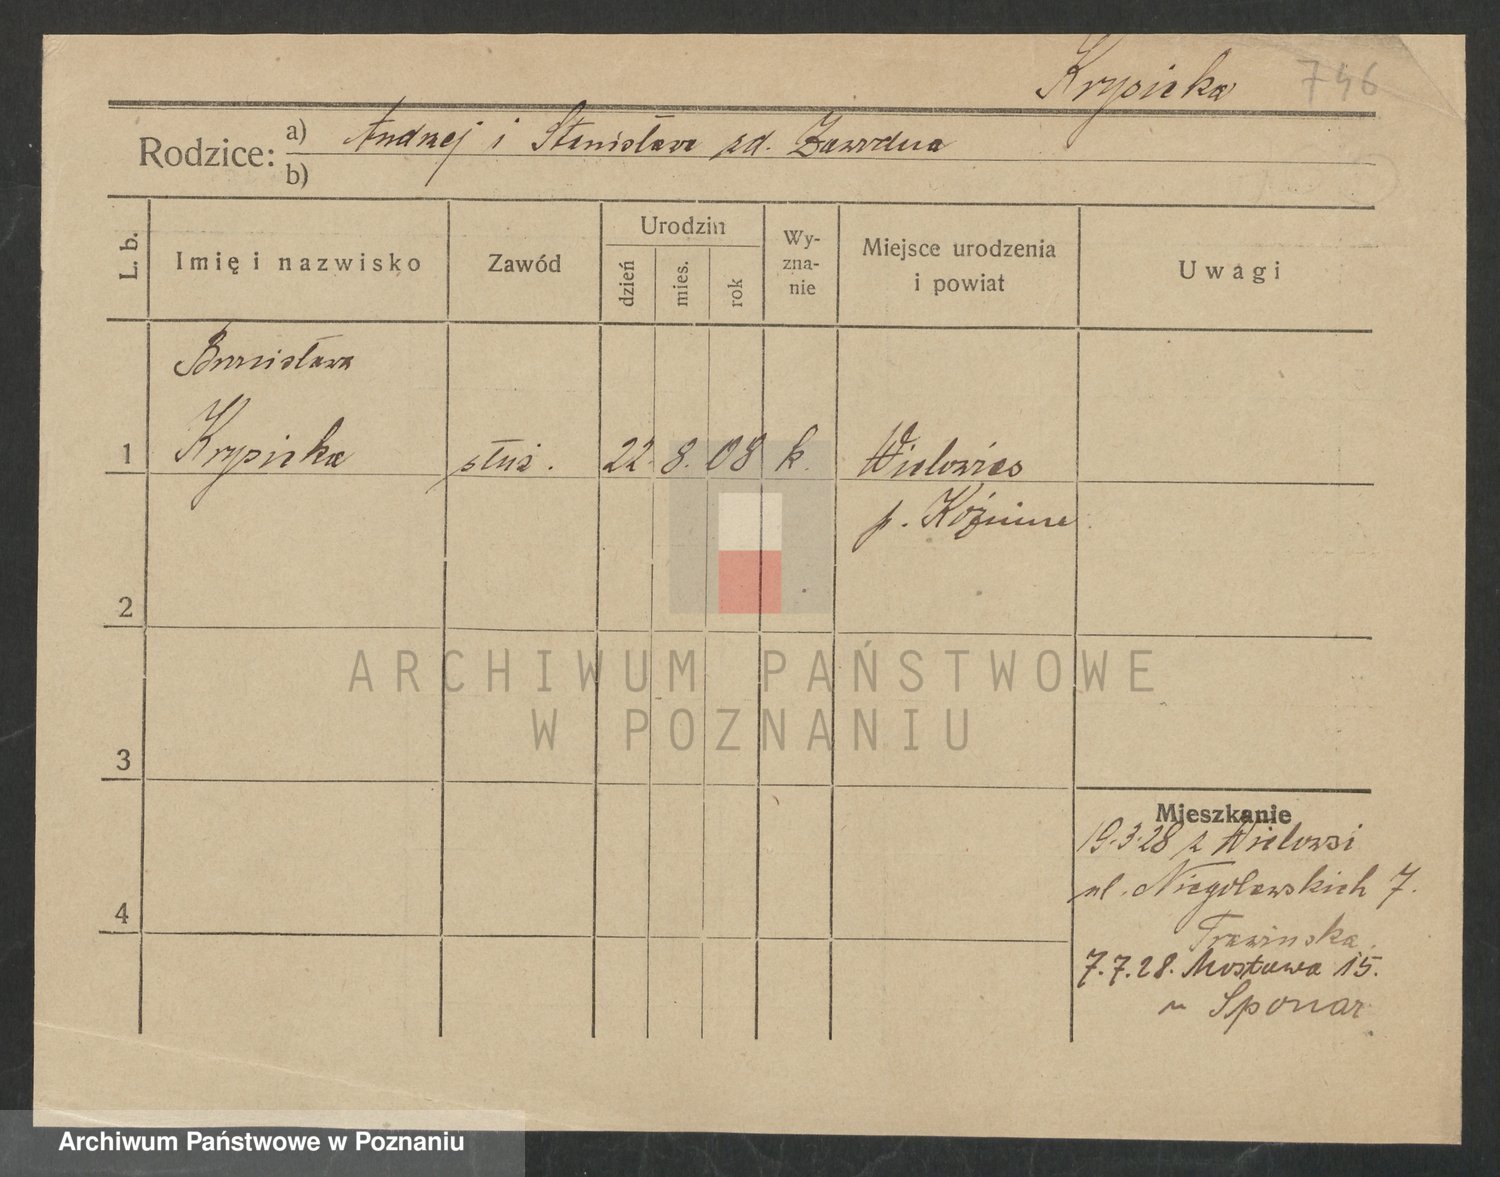 Krysicka 746
Rodzice: a) Andrzej i Stanisława zd. Zawodna
b)
L. b. Imię i nazwisko Zawód Urodzin dzień mies. rok Wy-zna-nie Miejsce urodzenia i powiat Uwagi
Bronisława
1 Krysicka służ. 22. 8. 08 k. Wielowieś
p. Koźmin
2
ARCHIWUM PAŃSTWOWE
W POZNANIU
3
Mieszkanie
19.3.28 z Wielowsi
ul. Niegolewskich 7.
4
7.7.28. Mostowa 15.
Sponar
Archiwum Państwowe w Poznaniu